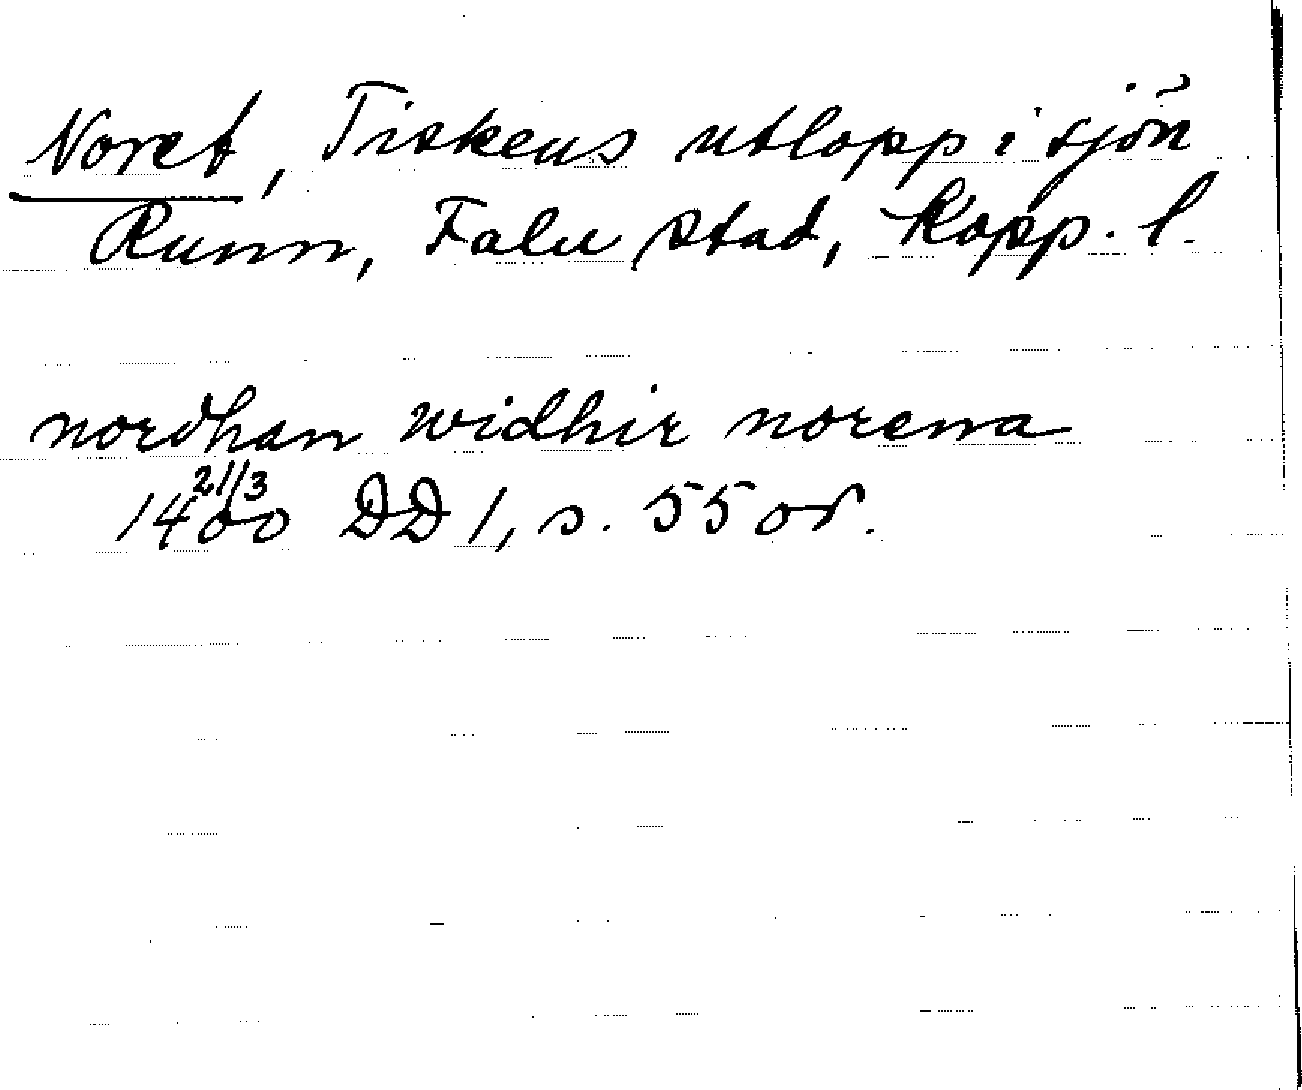 Noret, Tiskens utlopp i sjön
Runn, Falu stad, Kopp. l.
nordhan widhir norena
21/3 1400 DD 1, s. 55 or.